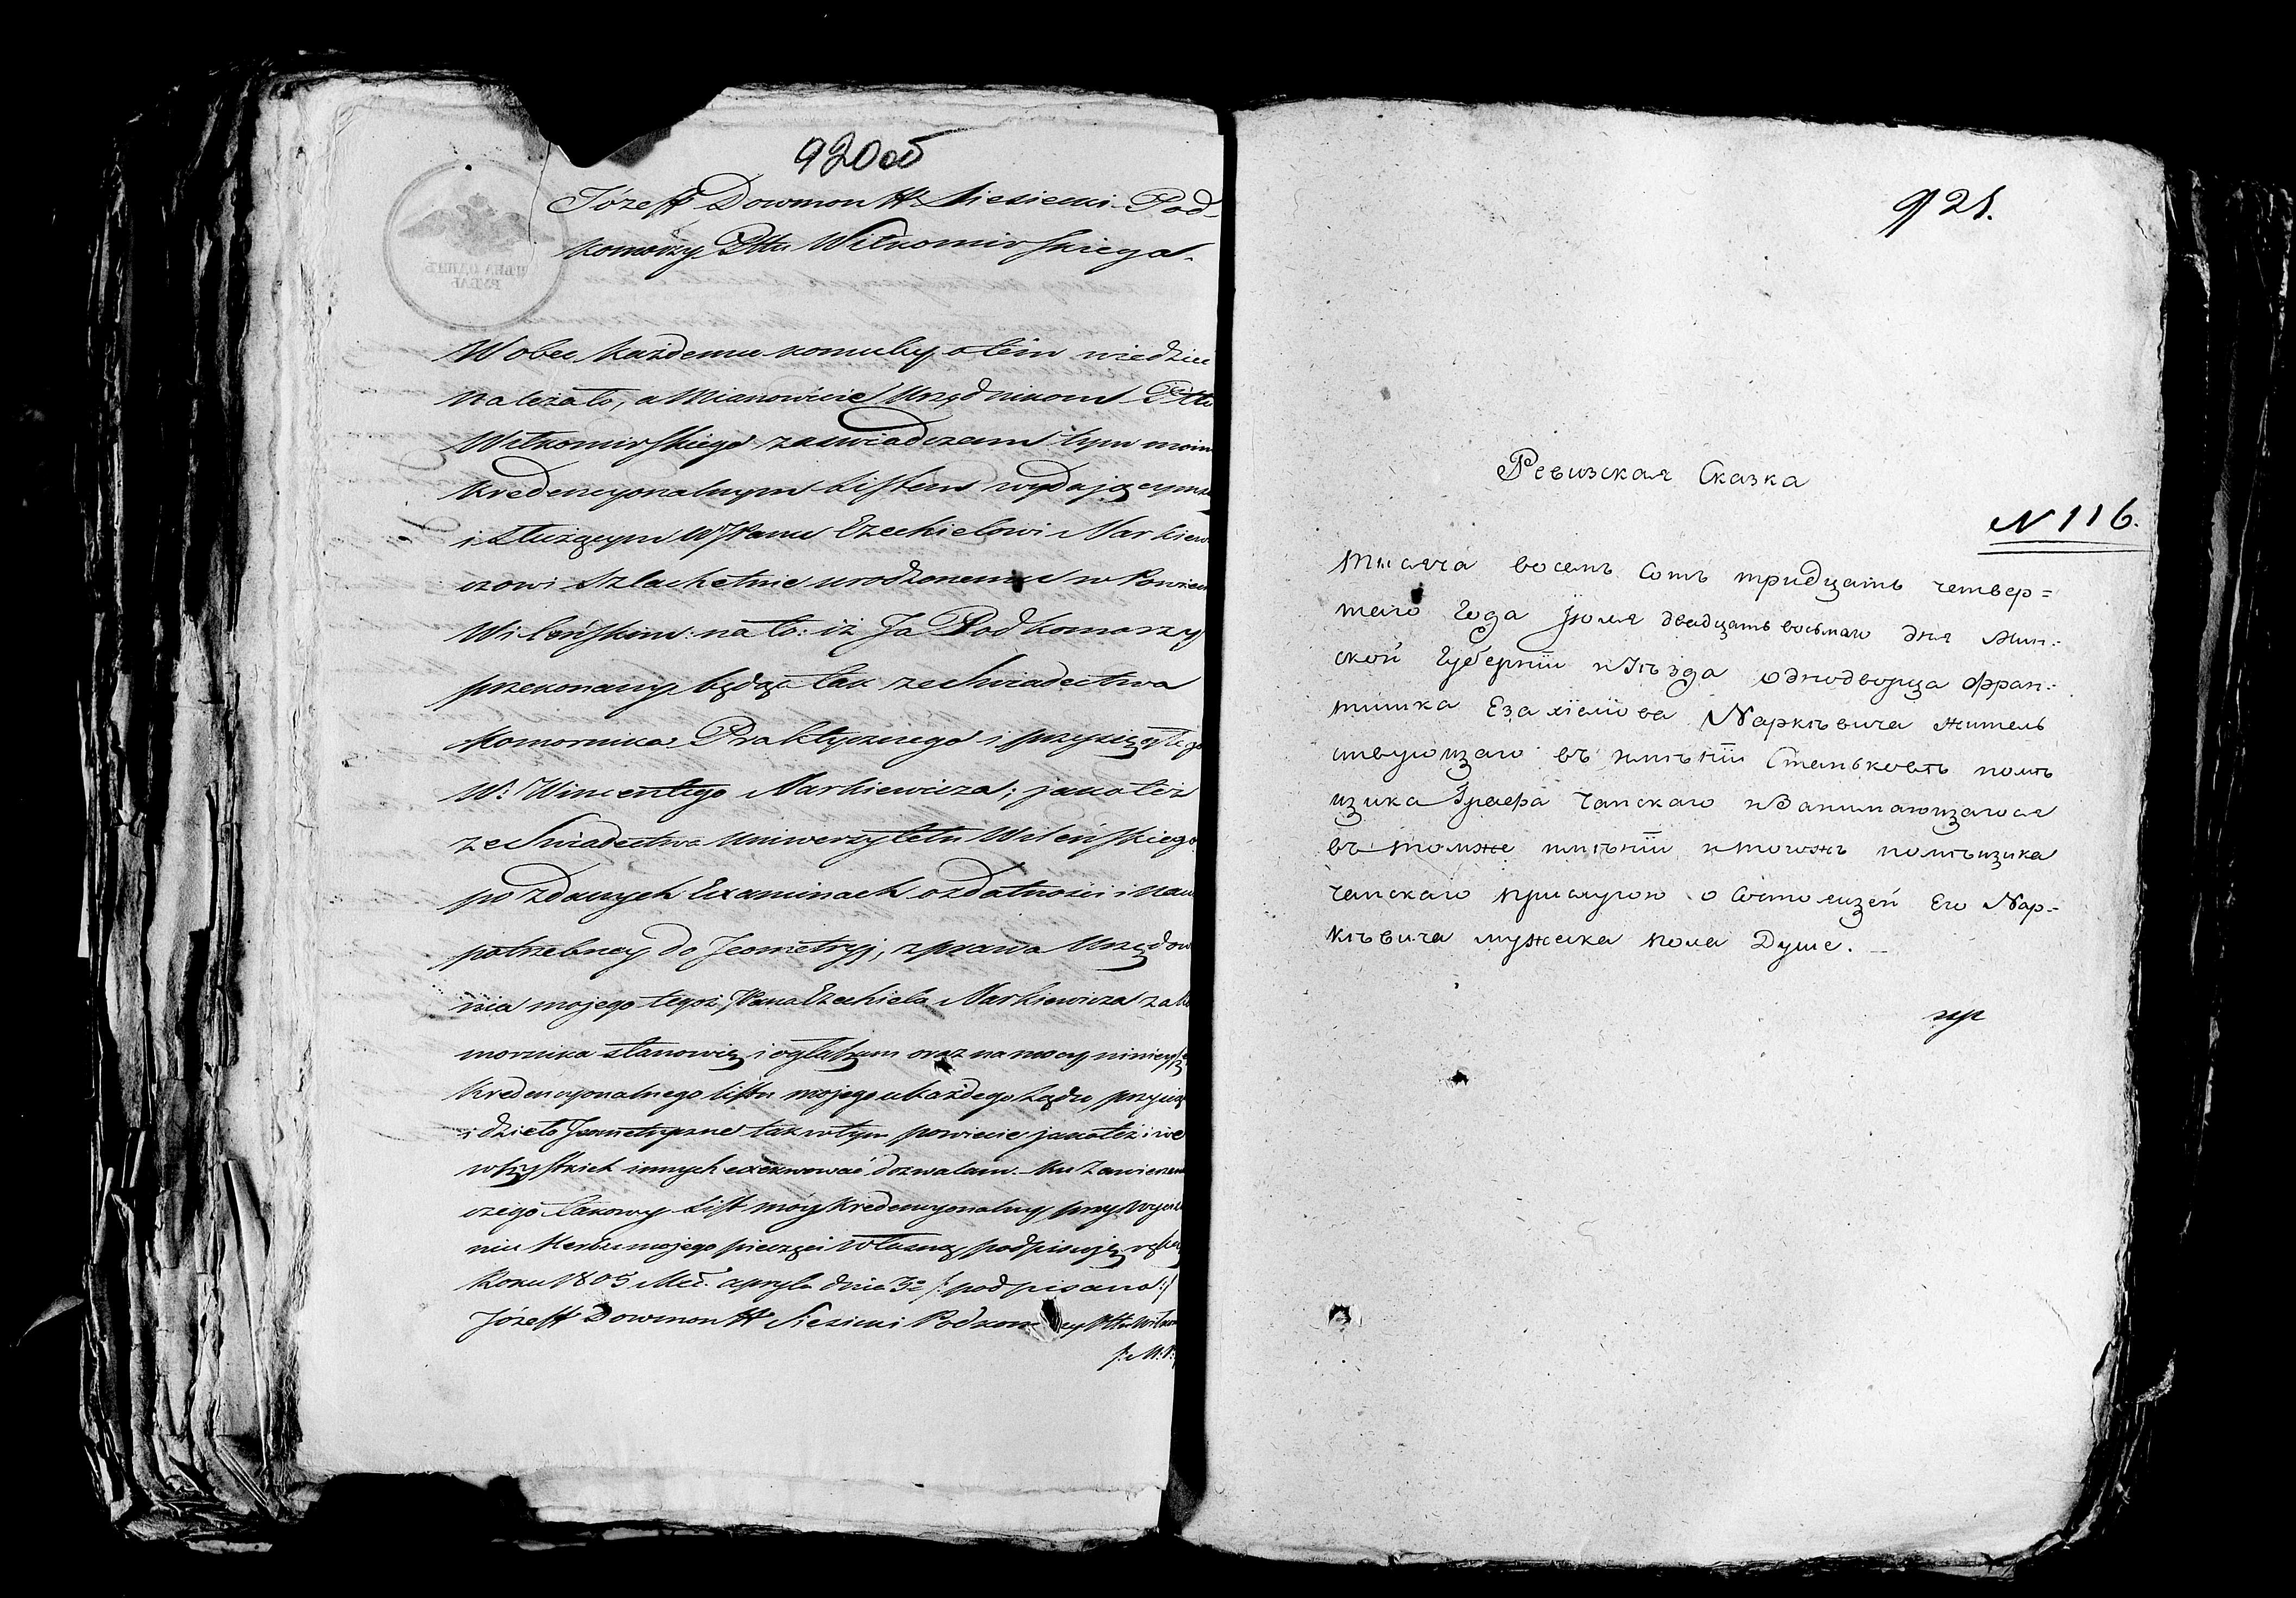 920об
Józeff Dowmontt Siesicki Pod-
komorzy Pttu Wiłkomirskiego.
W obec każdemu komuby o tém wiedzieć
należało, a mianowicie Urzędnikom Pttu
Wiłkomirskiego zaświadczam tym moim
Kredencyonalnym Listem wydającym się
i służącym WJPanu Ezechielowi Narkiewi
czowi Szlachetnie urodzonemu w Powiecie
Wileńskim: na to: iż Ja Podkomorzy
przekonany będąc tak ze Swiadectwa
Komornika Praktycznego i przysięgłego
W: Wincentego Narkiewicza; jako téż
ze Swiadectwa Uniwerzytetu Wileńskiego
po zdanych Examinach o zdatności i nau
potrzebney do Jeometryj, z prawa Urzędow
nia mojego tegoż JPana Ezechiela Narkiewicza za Ko
mornika stanowię i ogłaszam oraz na mocy ninieysze
Kredencyonalnego listu mojego u każdego Sądu, przysięg
i dzieło Jeometryczne tak w tym powiecie jako téż i we
wszystkich innych exekwować dozwalam. Ku
czego takowy List móy Kredencyonalny, przy wyci
niu Herbu mojego pieczęci własną podpisuję ręką
Roku 1805 Mca. apryla dnia 3o /: podpisano:/
Józeff Dowmontt Siesicki Podkom zy Pttu Wiłkom
/: M: P:
921.
Ревизская Сказка
N 116.
тысяча восемь сотъ тридцать четвер=
таго Года Іюля двадцать восьмаго дня Мин:
ской Губерніи и Уѣзда однодворца Фран:
тишка Езахіелова Наркѣвича житель
ствующаго въ имѣніи Станьковѣ помѣ
щика Графа Чапскаго и Занимающагося
въ томже имѣніи и тогожъ помѣщика
Чапскаго прислугою о Состоящей Его Нар=
кѣвича мужска пола Душе.